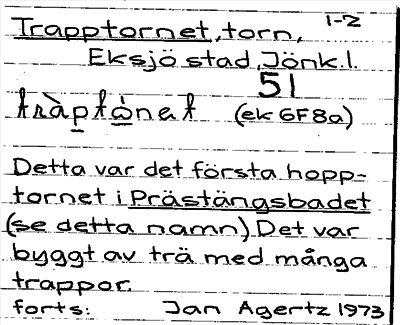 1-2
Trapptornet, torn,
Eksjö stad, Jönk.l.
51
(ek 6F8a)
Detta var det första hopp-
tornet i Prästängsbadet
(se detta namn). Det var
byggt av trä med många
trappor.
forts: Jan Agertz 1973